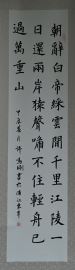 朝辭白帝綵雲間千里江陵一
日還兩岸猿聲啼不住輕舟已
過萬重山